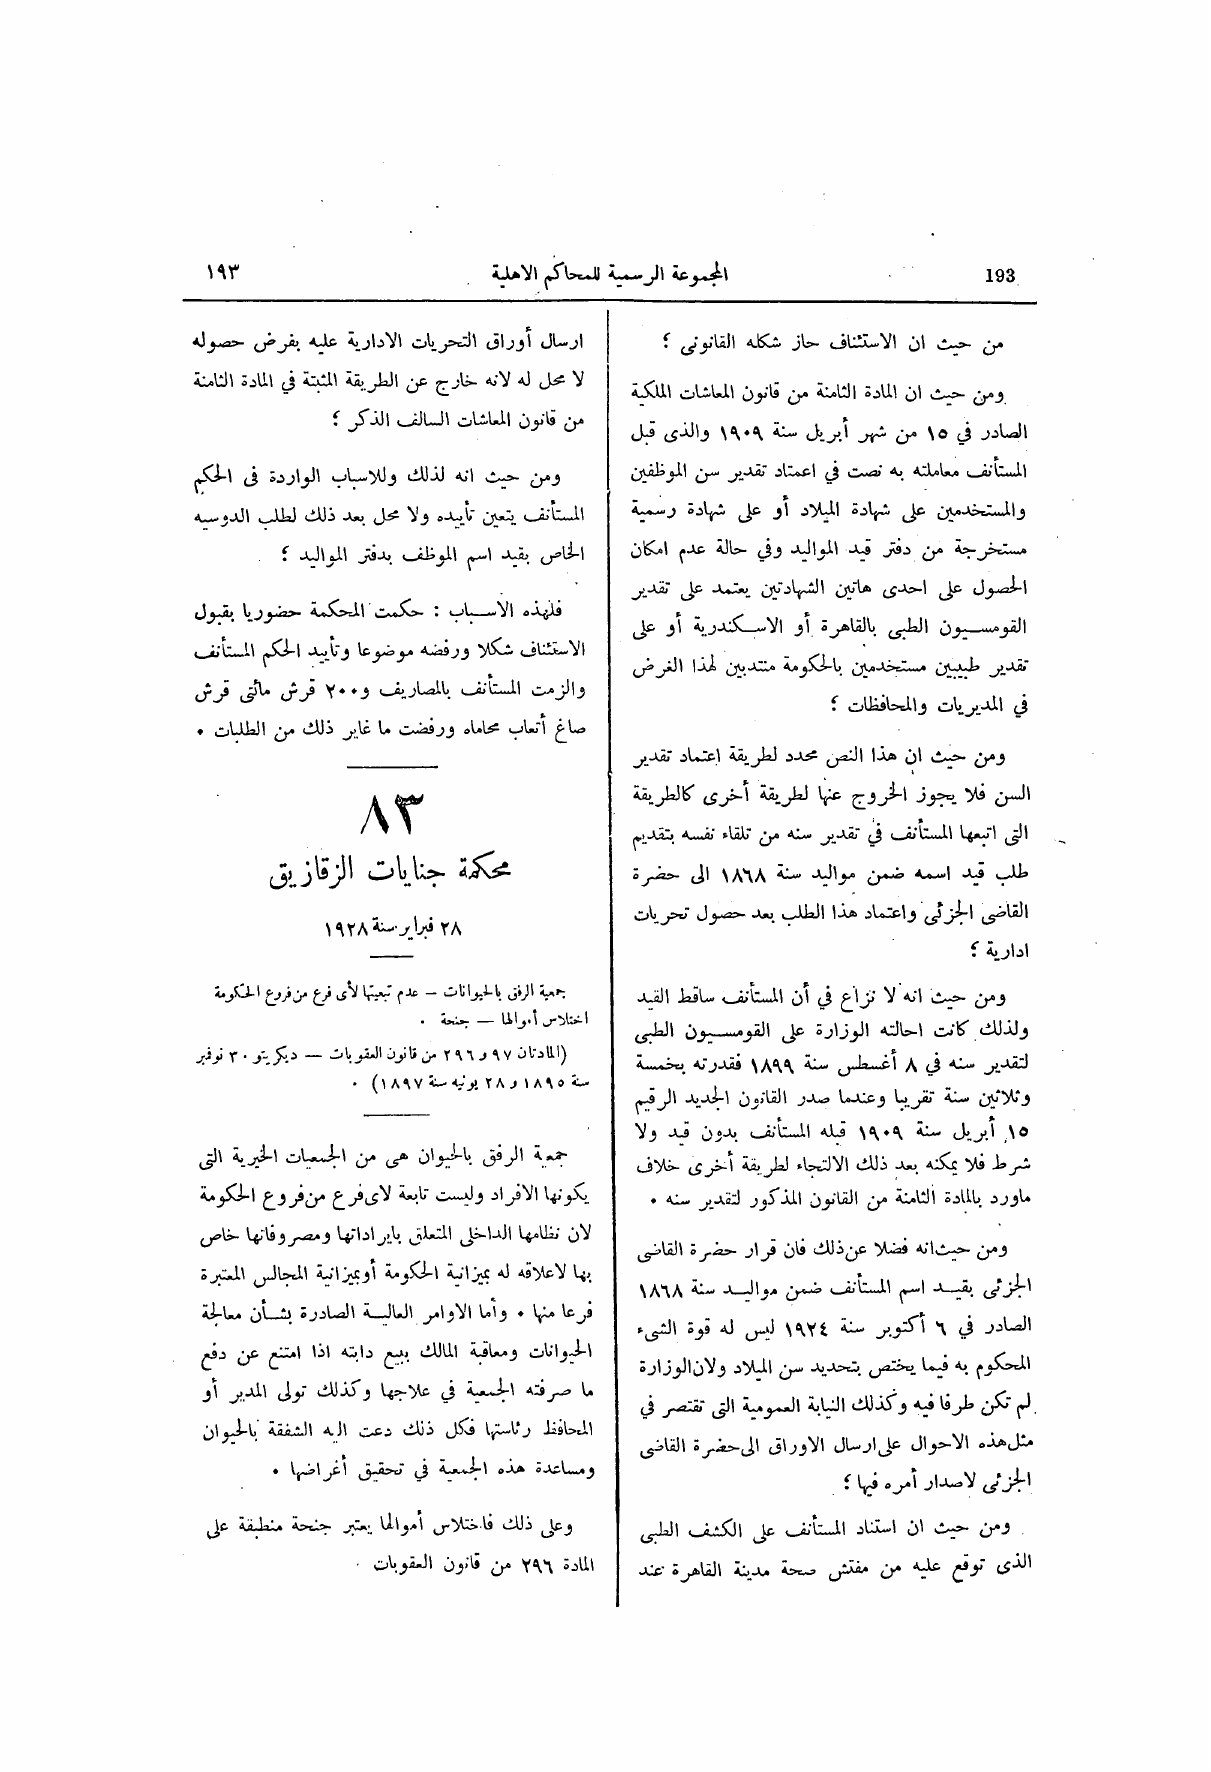 193
المجموعة الرسمية للمحاكم الاهلية
١٩٣
من حيث ان الاستئناف حاز شكله القانونى ؛
ومن حيث ان المادة الثامنة من قانون المعاشات الملكية
الصادر في ١٥ من شهر أبريل سنة ١٩٠٩ والذى قبل
المستأنف معاملته به نصت في اعتماد تقدير سن الموظفين
والمستخدمين على شهادة الميلاد أو على شهادة رسمية
مستخرجة من دفتر قيد المواليد وفي حالة عدم امكان
الحصول على احدى هاتين الشهادتين يعتمد على تقدير
القومسيون الطبى بالقاهرة أو الاسكندرية أو على
تقدير طبيبين مستخدمين بالحكومة منتدبين لهذا الغرض
في المديريات والمحافظات ؛
ومن حيث ان هذا النص محدد لطريقة اعتماد تقدير
السن فلا يجوز الخروج عنها لطريقة أخرى كالطريقة
التى اتبعها المستأنف في تقدير سنه من تلقاء نفسه بتقديم
طلب قيد اسمه ضمن مواليد سنة ١٨٦٨ الى حضرة
القاضى الجزئى واعتماد هذا الطلب بعد حصول تحريات
ادارية ؛
ومن حيث انه لا نزاع في أن المستأنف ساقط القيد
ولذلك كانت احالته الوزارة على القومسيون الطبى
لتقدير سنه في ٨ أغسطس سنة ١٨٩٩ فقدرته بخمسة
وثلاثين سنة تقريبا وعندما صدر القانون الجديد الرقيم
١٥ أبريل سنة ١٩٠٩ قبله المستأنف بدون قيد ولا
شرط فلا يمكنه بعد ذلك الالتجاء لطريقة أخرى خلاف
ماورد بالمادة الثامنة من القانون المذكور لتقدير سنه .
ومن حيث انه فضلا عن ذلك فان قرار حضرة القاضى
الجزئى بقيد اسم المستأنف ضمن مواليد سنة ١٨٦٨
الصادر في ٦ أكتوبر سنة ١٩٢٤ ليس له قوة الشىء
المحكوم به فيما يختص بتحديد سن الميلاد ولان الوزارة
لم تكن طرفا فيه وكذلك النيابة العمومية التى تقتصر في
مثل هذه الاحوال على ارسال الاوراق الى حضرة القاضى
الجزئى لاصدار أمره فيها ؛
ومن حيث ان استناد المستأنف على الكشف الطبى
الذى توقع عليه من مفتش صحة مدينة القاهرة عند
ارسال أوراق التحريات الادارية عليه بفرض حصوله
لا محل له لانه خارج عن الطريقة المثبتة في المادة الثامنة
من قانون المعاشات السالف الذكر ؛
ومن حيث انه لذلك وللاسباب الواردة فى الحكم
المستأنف يتعين تأييده ولا محل بعد ذلك لطلب الدوسيه
الخاص بقيد اسم الموظف بدفتر المواليد ؛
فلهذه الاسباب : حكمت المحكمة حضوريا بقبول
الاستئناف شكلا ورفضه موضوعا وتأييد الحكم المستأنف
والزمت المستأنف بالمصاريف و٢٠٠ قرش مائتى قرش
صاغ أتعاب محاماه ورفضت ما غاير ذلك من الطلبات .
٨٣
محكمة جنايات الزقازيق
٢٨ فبراير سنة ١٩٢٨
جمعية الرفق بالحيوانات – عدم تبعيتها لأى فرع من فروع الحكومة
اختلاس أموالها – جنحة .
(المادتان ٩٧ و ٢٩٦ من قانون العقوبات – ديكريتو ٣٠ نوفبر
سنة ١٨٩٥ و ٢٨ يونيه سنة ١٨٩٧) .
جمعية الرفق بالحيوان هى من الجمعيات الخيرية التى
يكونها الافراد وليست تابعة لاى فرع من فروع الحكومة
لان نظامها الداخلى المتعلق بايراداتها ومصروفاتها خاص
بها لاعلاقه له بميزانية الحكومة أو بميزانية المجالس المعتبرة
فرعا منها . وأما الاوامر العالية الصادرة بشأن معالجة
الحيوانات ومعاقبة المالك ببيع دابته اذا امتنع عن دفع
ما صرفته الجمعية في علاجها وكذلك تولى المدير أو
المحافظ رئاستها فكل ذلك دعت اليه الشفقة بالحيوان
ومساعدة هذه الجمعية في تحقيق أغراضها .
وعلى ذلك فاختلاس أموالها يعتبر جنحة منطبقة على
المادة ٢٩٦ من قانون العقوبات .